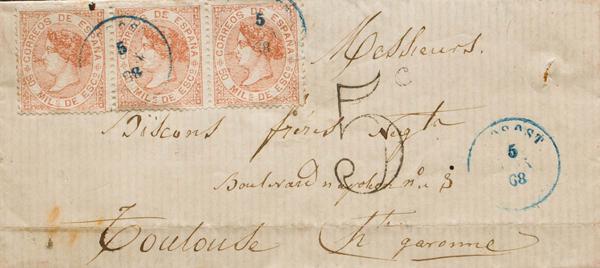 CORREOS DE ESPAÑA
50 MIL.S DE ESC.O
CORREOS DE ESPAÑA
50 MIL.S DE ESC.O
CORREOS DE ESPAÑA
50 MIL.S DE ESC.O
5
68
5
68
Messieurs.
C
5
Biscons frères Negts
OOST
5
68
Boulevard napoleon n.o 8
Toulouse Hte garonne